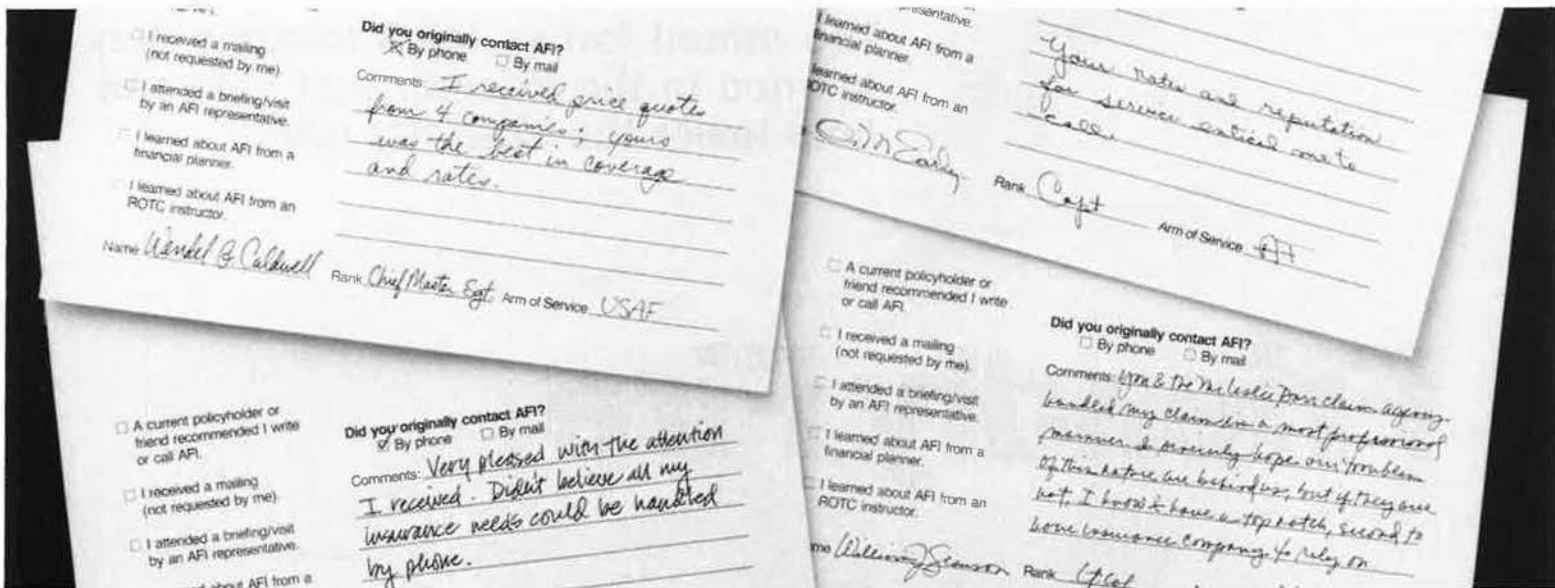 I received a mailing
(not requested by me).
I attended a briefing/visit
by an AFI representative.
I learned about AFI from a
financial planner.
I learned about AFI from an
ROTC instructor.
Did you originally contact AFI?
By phone By mail
Comments: I received price quotes
from 4 companies; yours
was the best in coverage
and rates.
Name Wendel G. Caldwell Rank Chief Master Sgt. Arm of Service USAF
presentative.
I learned about AFI from a
financial planner.
learned about AFI from an
OTC instructor.
-Your rates and reputation
for service enticed me to
call.
Rank Capt Arm of Service
A current policyholder or
friend recommended I write
or call AFI.
I received a mailing
(not requested by me).
I attended a briefing/visit
by an AFI representative.
about AFI from a
Did you originally contact AFI?
By phone By mail
Comments: Very pleased with the attention
I received. Didn't believe all my
insurance needs could be handled
by phone.
A current policyholder or
friend recommended I write
or call AFI.
I received a mailing
(not requested by me).
I attended a briefing/visit
by an AFI representative.
I learned about AFI from a
financial planner.
I learned about AFI from an
ROTC instructor.
Did you originally contact AFI?
By phone By mail
Comments: You & the claim agency
handled my claim in a most professional
manner. I sincerely hope our troubles
of this nature are behind us, but if they are
not, I know I have a top notch, second to
none insurance company to rely on.
me William J. Rank Lt Col